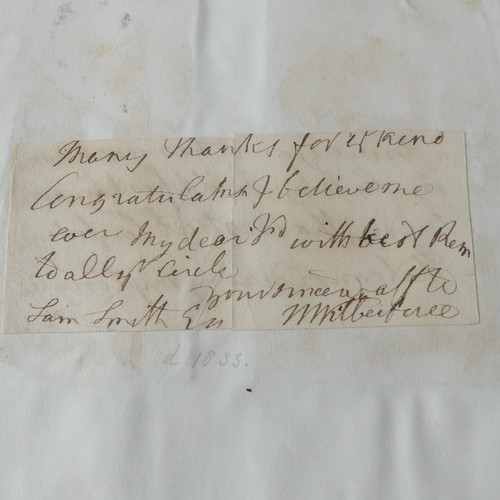 Many thanks for yr kind
Congratulatns & believe me
ever My dear Sir with best Rem
to all yr Circle
Yours sincerely & affte
Sam Smith Esq W Wilberforce
d. 1833.